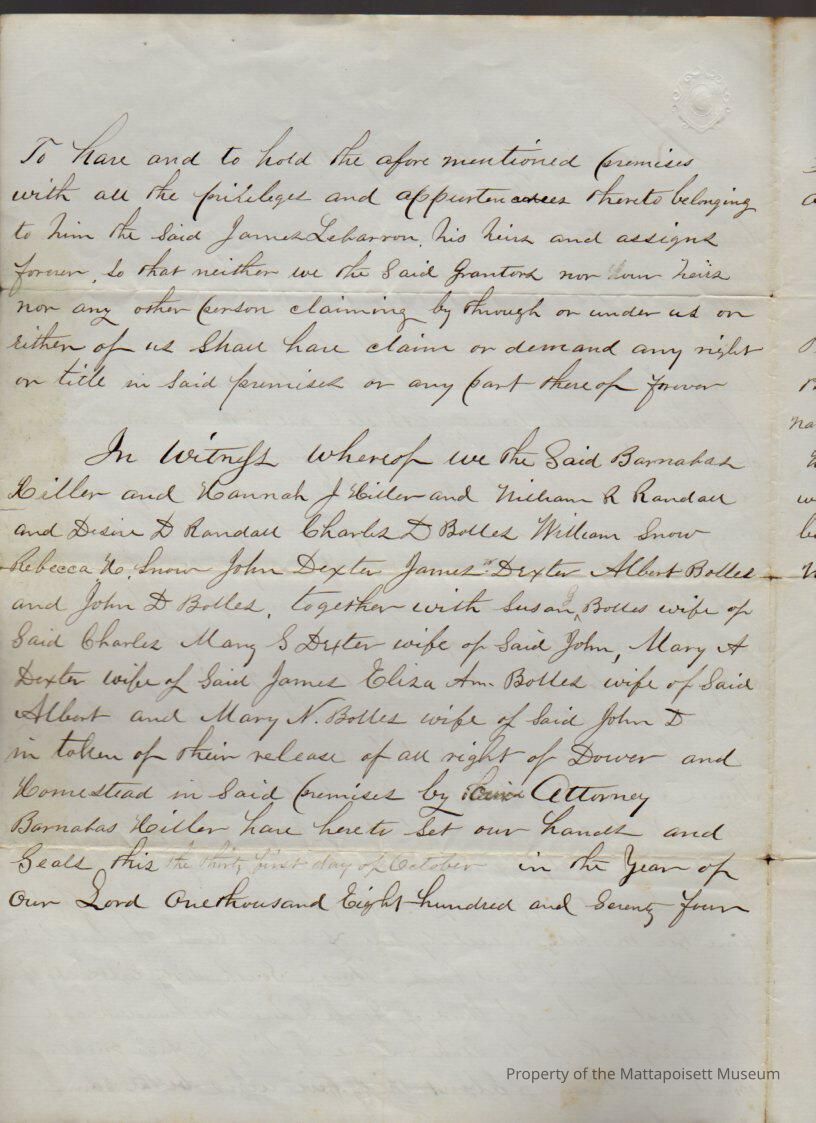 To have and to hold the afore mentioned premises
with all the privileges and appurtenances thereto belonging
to him the Said James Lebarron, his heirs and assigns
forever, So that neither we the Said Grantors nor our heirs
nor any other person claiming by through or under us or
either of us Shall have claim or demand any right
or title in Said premises or any part thereof forever
In Witness whereof we the Said Barnabas
Hiller and Hannah J Hiller and William R Randall
and Desire D Randall Charles D Bolles William Snow
Rebecca H. Snow John Dexter James Dexter Albert Bolles
and John D Bolles, together with Susan J Bolles wife of
Said Charles Mary S Dexter wife of Said John, Mary A
Dexter wife of Said James Eliza Ann Bolles wife of Said
Albert and Mary N. Bolles wife of Said John D
in token of their release of all right of Dower and
Homestead in Said premises by Attorney
Barnabas Hiller have hereto Set our hands and
Seals this the thirty first day of October in the Year of
Our Lord One thousand Eight hundred and Seventy four
Property of the Mattapoisett Museum